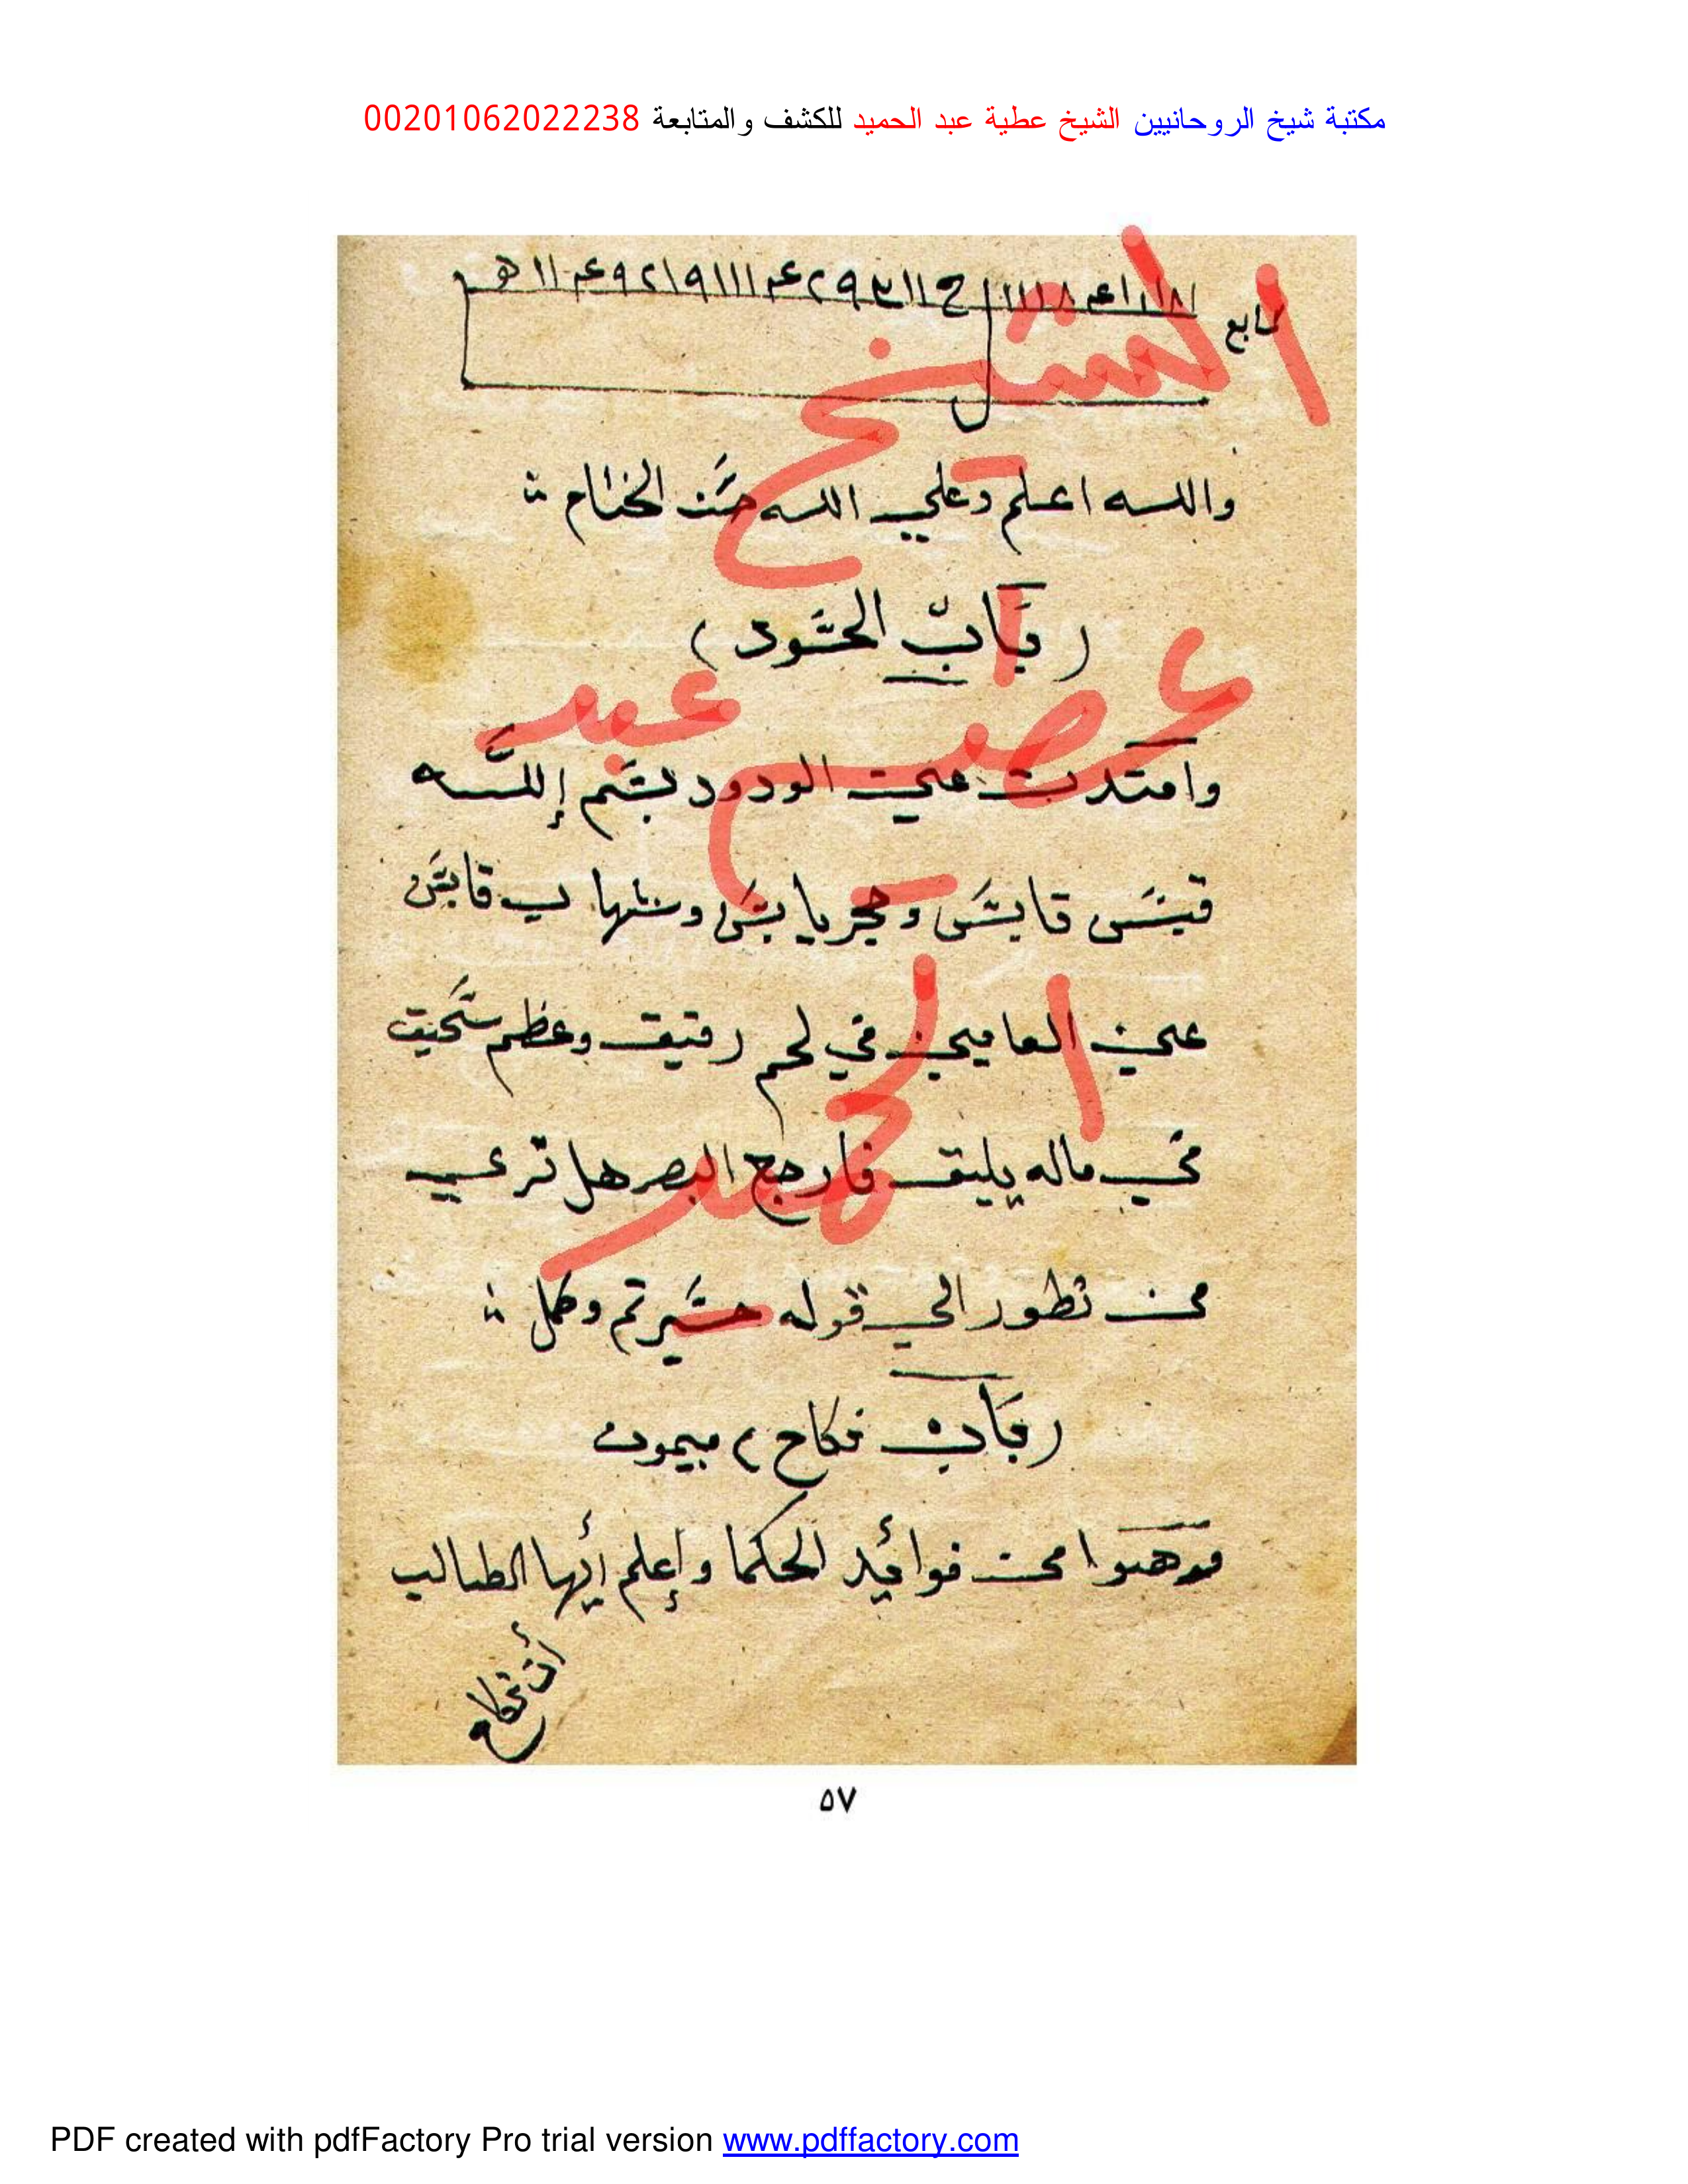 مكتبة شيخ الروحانيين الشيخ عطية عبد الحميد للكشف والمتابعة 00201062022238
تابع
والله اعلم وعلي الله حسن الختام
(باب الحسود)
وامتدت عين الودود بسم الله
قابس وحجر يابس وشهاب قابس
عين العاين في لحم رقيق وعظم سحيق
في ماله يليق فارجع البصر هل تري
من تطور الي قوله حسير تم وكمل
(باب نكاح) ميمون
من فوائد الحكما وإعلم أيها الطالب
أن نكاح
الشيخ
عطية عبد
الحميد
٥٧
PDF created with pdfFactory Pro trial version www.pdffactory.com